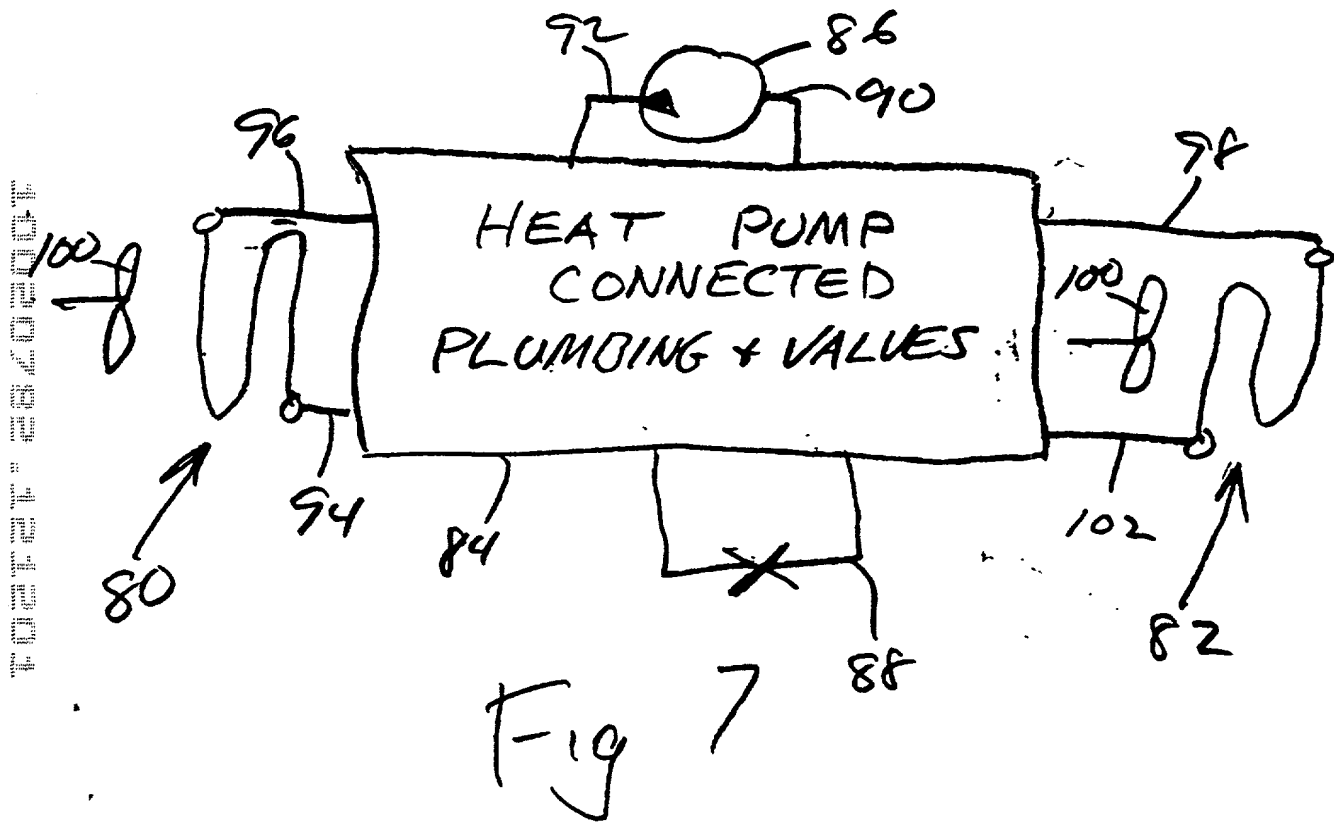 92
86
90
96
98
100
HEAT PUMP
CONNECTED
PLUMBING + VALVES
100
94
84
102
80
88
82
Fig 7